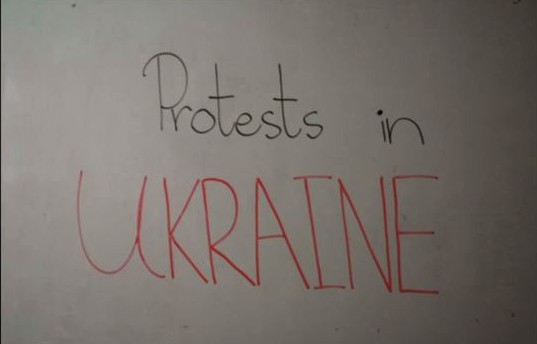 Protests in
UKRAINE